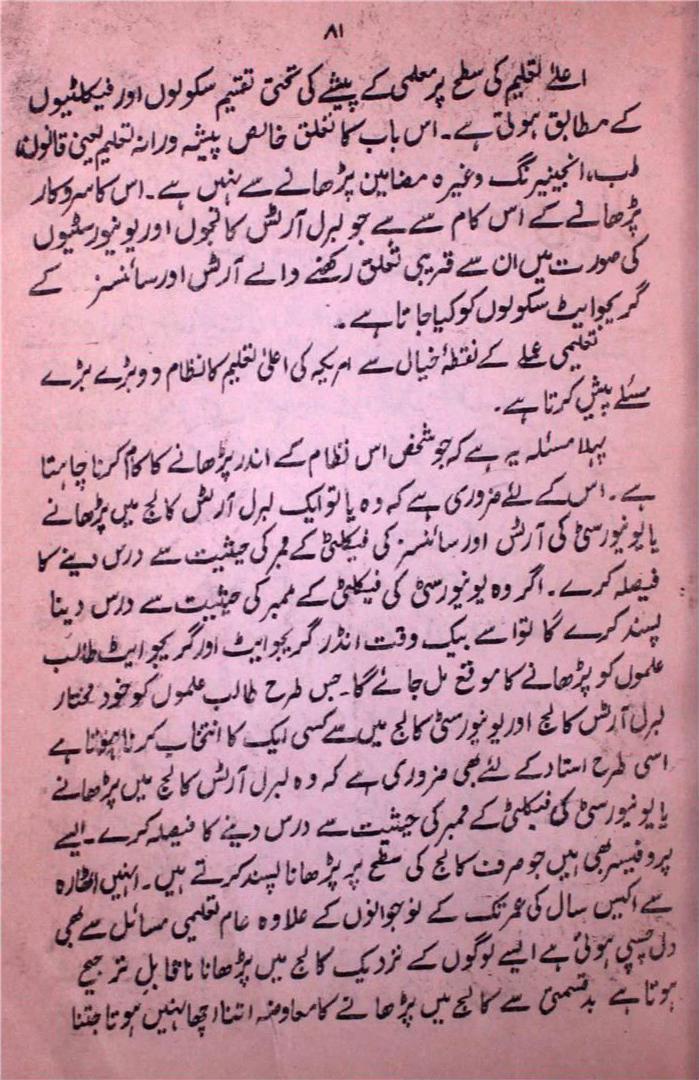 ۸۱
اعلےٰ تعلیم کی سطح پر معلمی کے پیشے کی تحتی تقسیم سکولوں اور فیکلٹیوں
کے مطابق ہوتی ہے۔ اس باب کا تعلق خالص پیشہ ورانہ تعلیم یعنی قانون،
طب، انجینیرنگ وغیرہ مضامین پڑھانے سے نہیں ہے۔ اس کا سروکار
پڑھانے کے اس کام سے ہے جو لبرل آرٹس کالجوں اور یونیورسٹیوں
کی صورت میں ان سے قریبی تعلق رکھنے والے آرٹس اور سائنسز کے
گریجوایٹ سکولوں کو کیا جاتا ہے۔
تعلیمی عملے کے نقطۂ خیال سے امریکہ کی اعلیٰ تعلیم کا نظام دو بڑے بڑے
مسئلے پیش کرتا ہے۔
پہلا مسئلہ یہ ہے کہ جو شخص اس نظام کے اندر پڑھانے کا کام کرنا چاہتا
ہے۔ اس کے لئے ضروری ہے کہ وہ یا تو ایک لبرل آرٹس کالج میں پڑھانے
یا یونیورسٹی کی آرٹس اور سائنسز کی فیکلٹی کے ممبر کی حیثیت سے درس دینے کا
فیصلہ کرے۔ اگر وہ یونیورسٹی کی فیکلٹی کے ممبر کی حیثیت سے درس دینا
پسند کرے گا تو اسے بیک وقت انڈر گریجوایٹ اور گریجوایٹ طالب
علموں کو پڑھانے کا موقع مل جائے گا۔ جس طرح طالب علموں کو خود مختار
لبرل آرٹس کالج اور یونیورسٹی کالج میں سے کسی ایک کا انتخاب کرنا ہوتا ہے
اسی طرح استاد کے لئے بھی ضروری ہے کہ وہ لبرل آرٹس کالج میں پڑھانے
یا یونیورسٹی کی فیکلٹی کے ممبر کی حیثیت سے درس دینے کا فیصلہ کرے۔ ایسے
پروفیسر بھی ہیں جو صرف کالج کی سطح پر پڑھانا پسند کرتے ہیں۔ انہیں اٹھارہ
سے اکیس سال کی عمر تک کے نوجوانوں کے علاوہ عام تعلیمی مسائل سے بھی
دلچسپی ہوتی ہے ایسے لوگوں کے نزدیک کالج میں پڑھانا قابلِ ترجیح
ہوتا ہے بدقسمتی سے کالج میں پڑھانے کا معاوضہ اتنا اچھا نہیں ہوتا جتنا